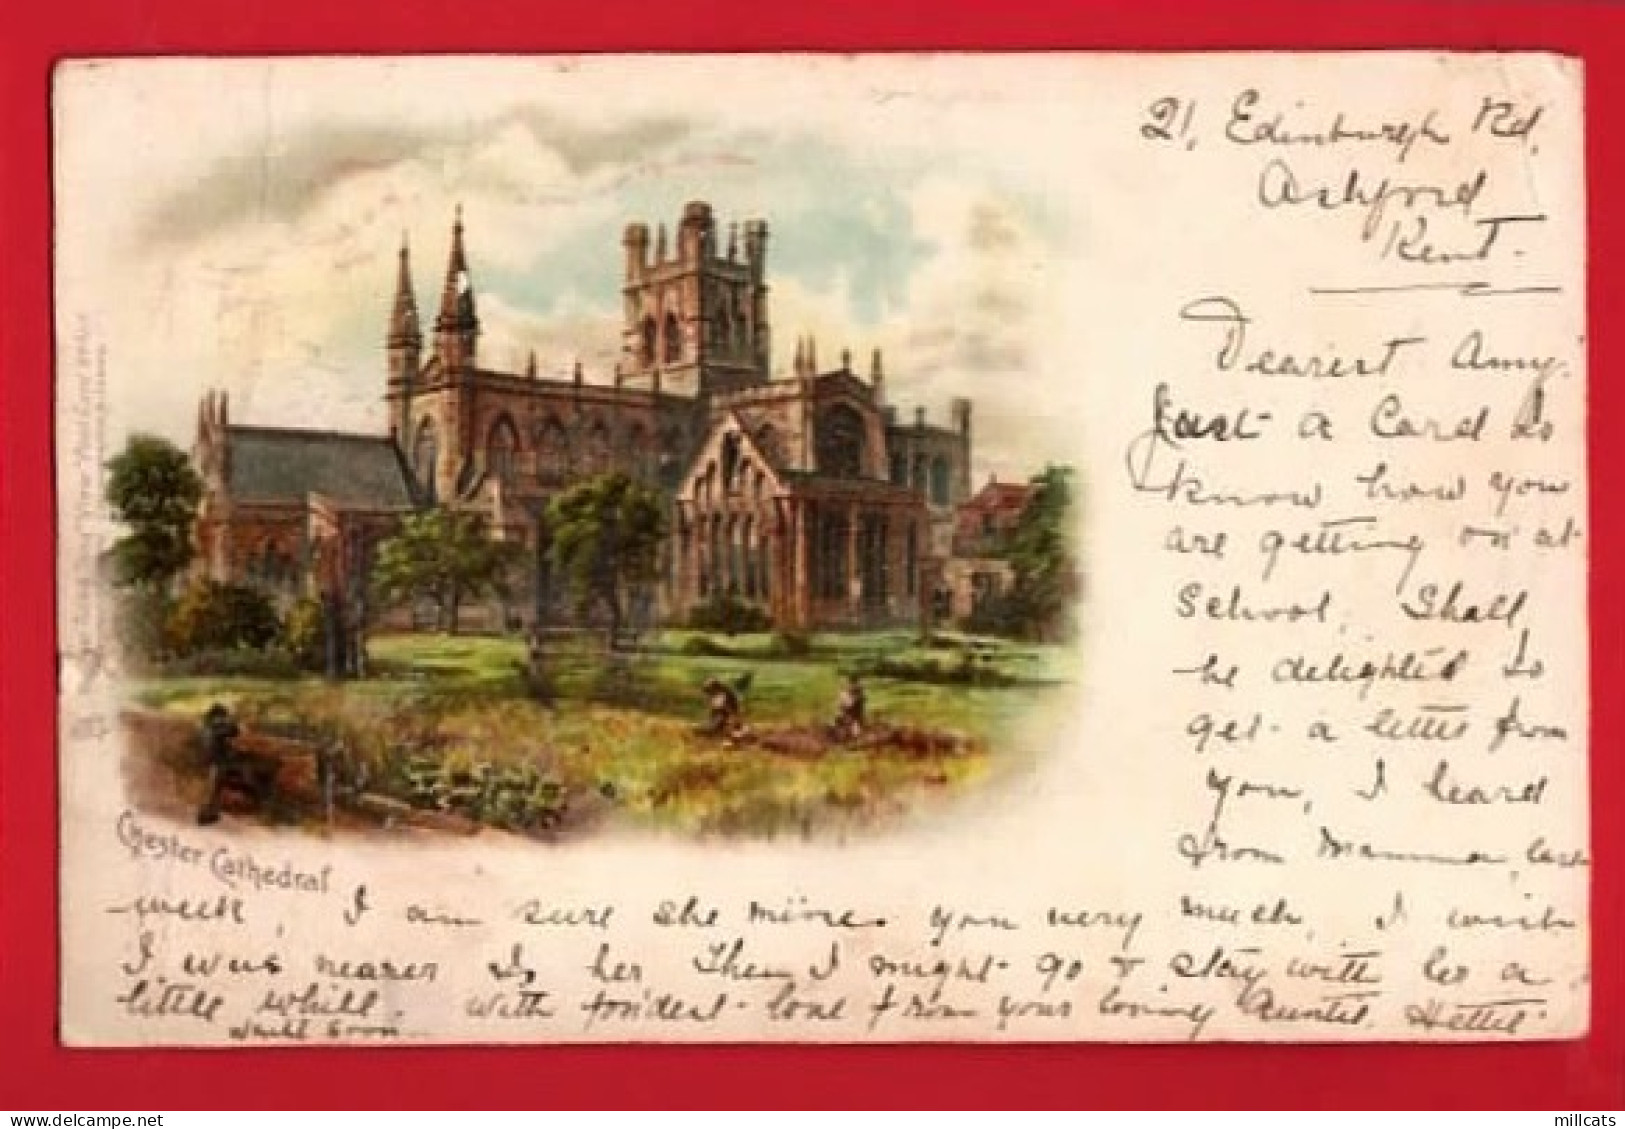 21, Edinburgh Rd,
Ashford
Kent.
Dearest Amy.
Just a Card to
know how you
are getting on at
School, Shall
be delighted to
get a letter from
you, I heard
from Mamma, last
week, I am sure she misses you very much, I wish
I was nearer to her then I might go & stay with her a
little while. With fondest love from your loving Auntie Hettie
Write soon
Chester Cathedral
millcats